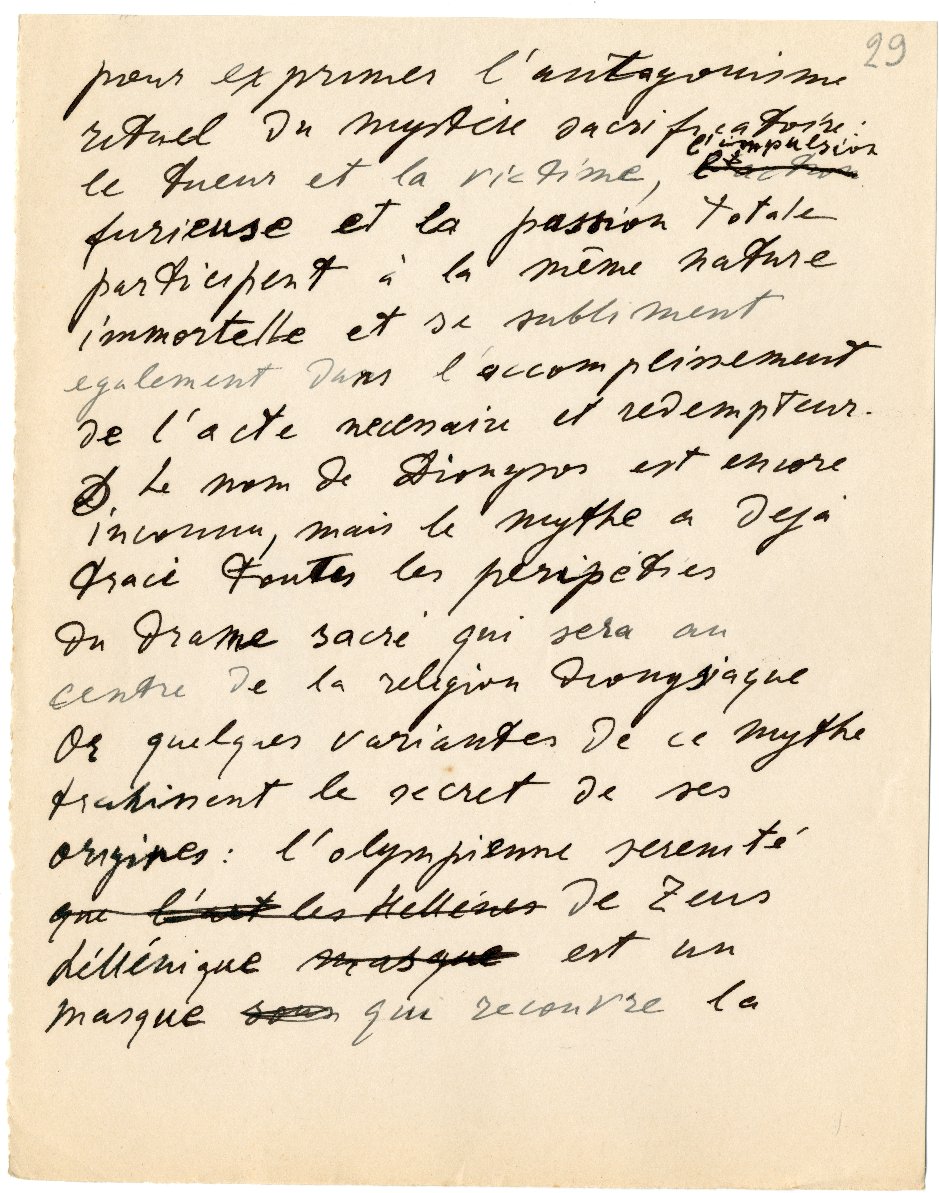 29
pour exprimer l'antagonisme
rituel du mystère sacrificatoire:
l'impulsion
le tueur et la victime, l'action
furieuse et la passion totale
participent à la même nature
immortelle et se subliment
egalement dans l'accomplissement
de l'acte necessaire et redempteur.
Le nom de Dionysos est encore
inconnu, mais le mythe a dejà
tracé toutes les peripéties
du drame sacré qui sera au
centre de la religion dionysiaque
Or quelques variantes de ce mythe
trahissent le secret de ses
origines: l'olympienne serenité
que l'art les Hellénes de Zeus
héllénique masque est un
masque sous qui recouvre la